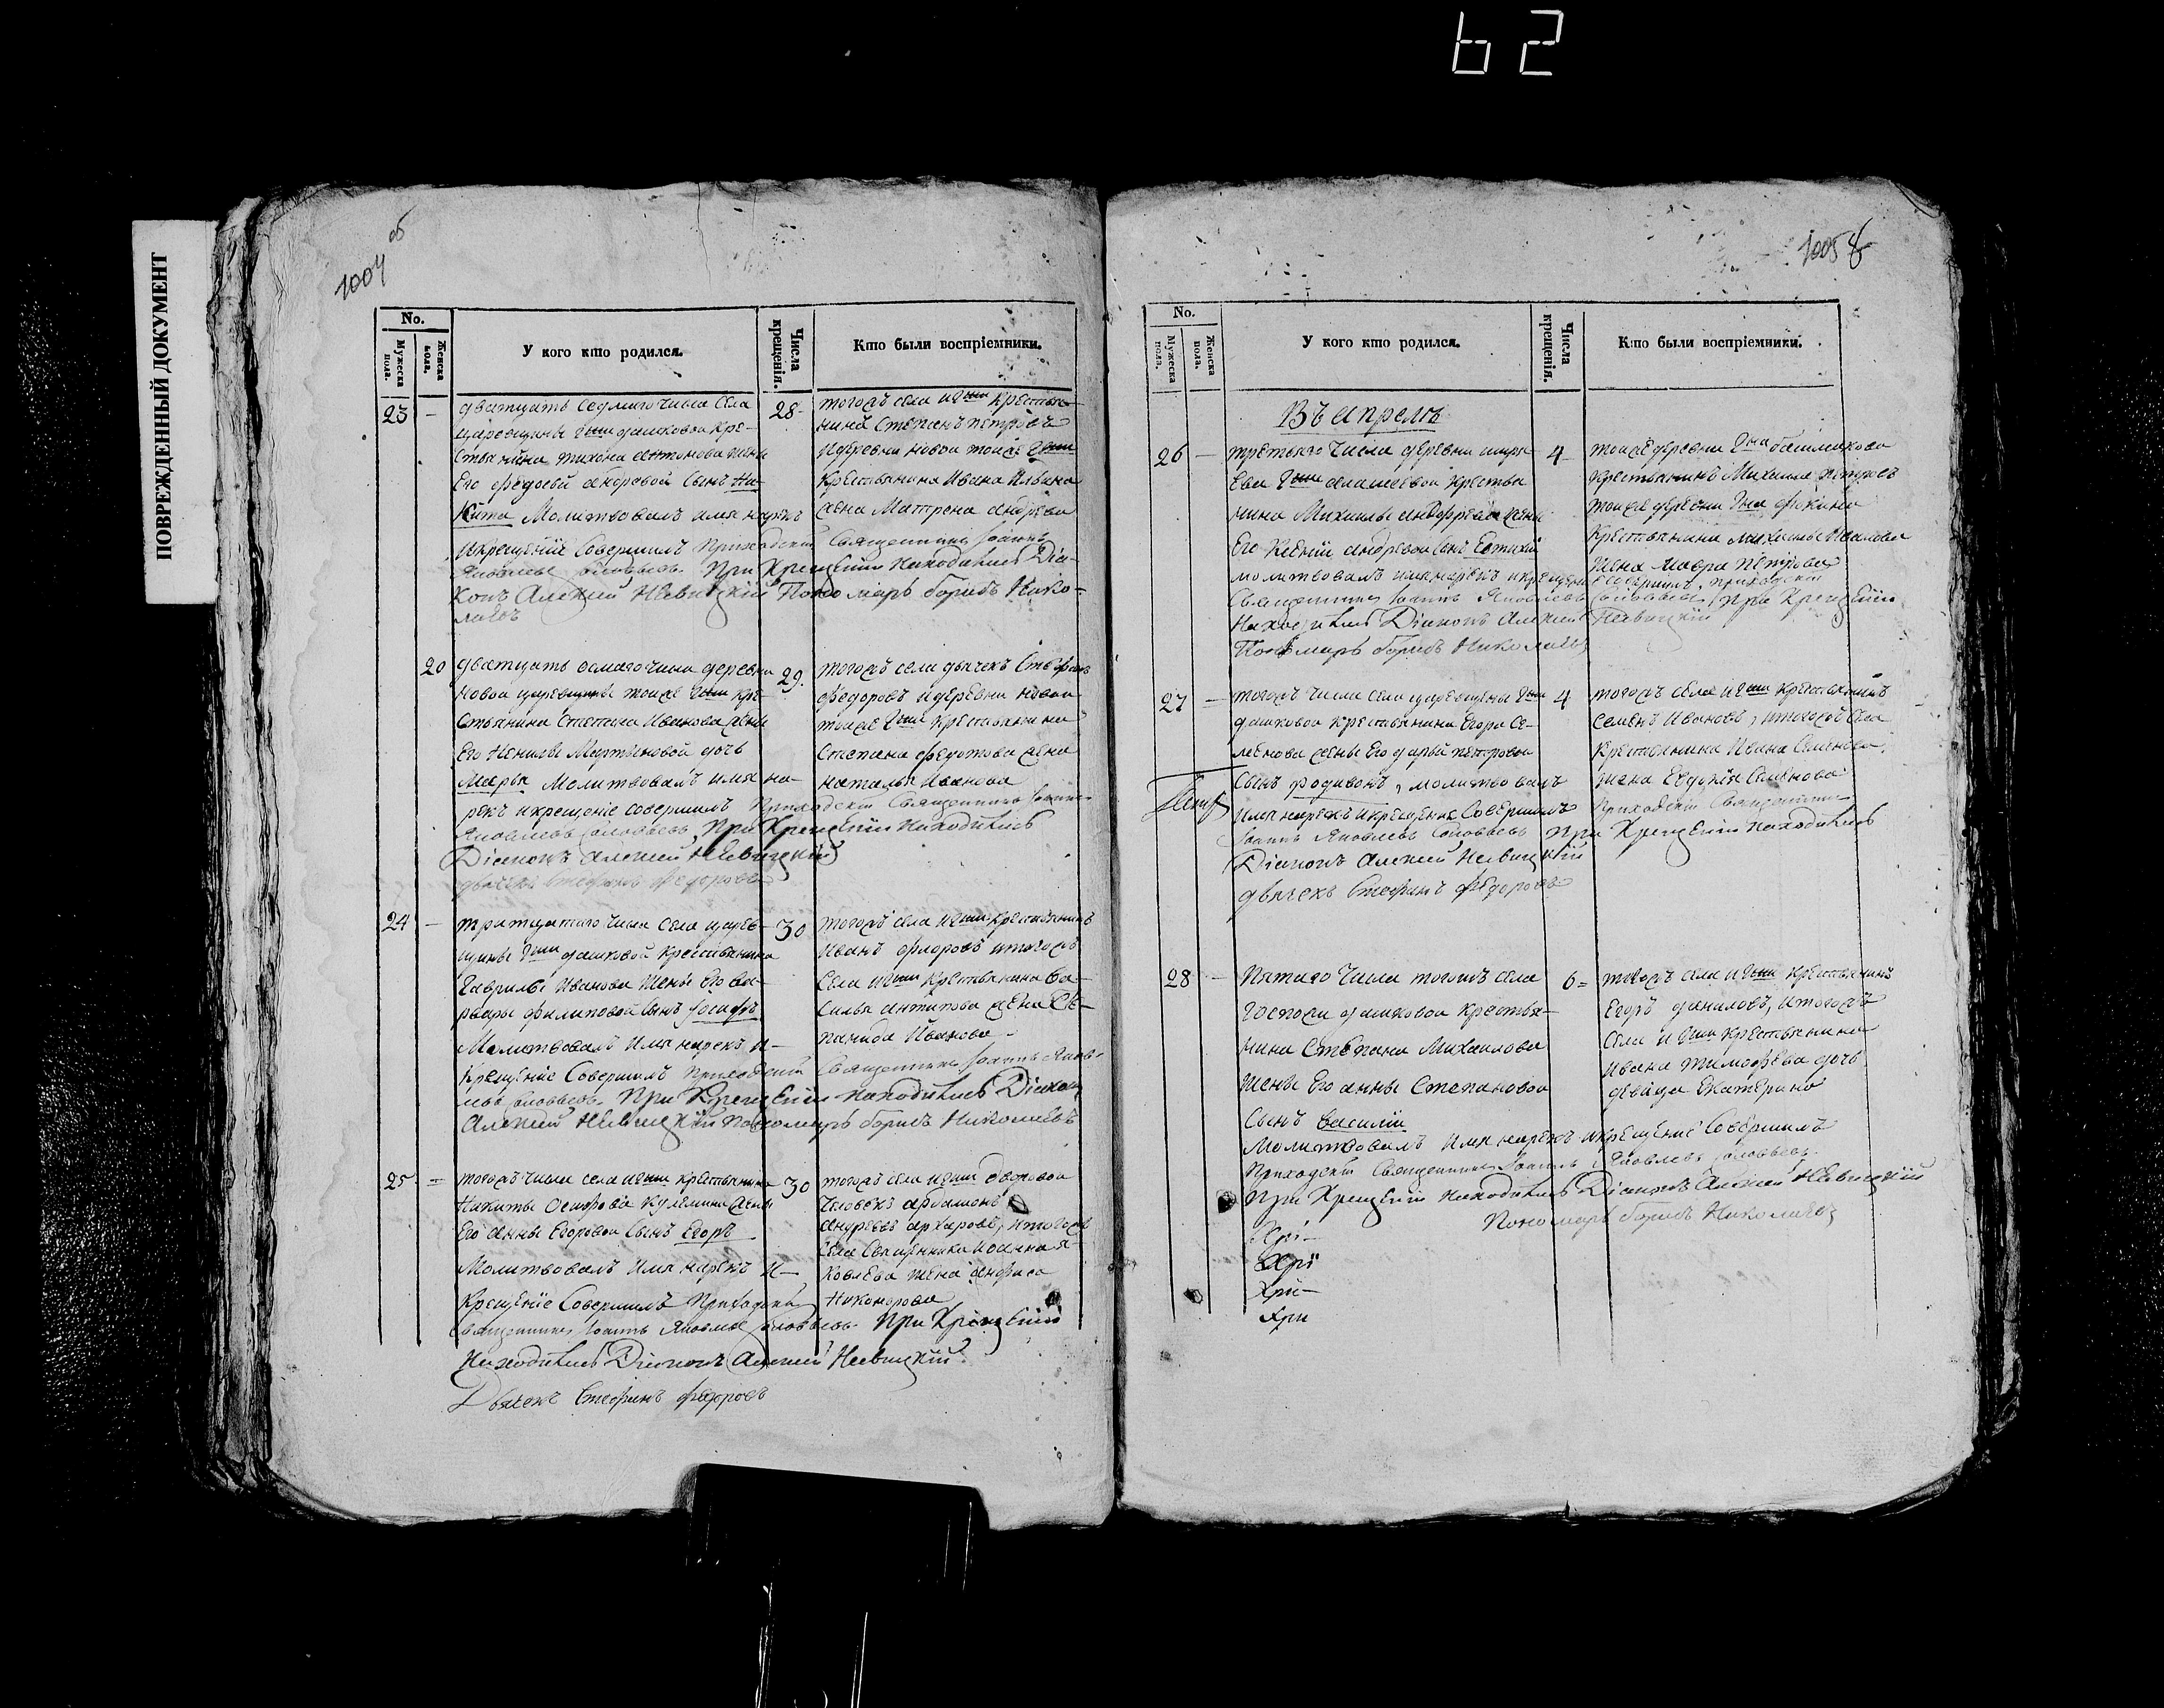 62
ПОВРЕЖДЕННЫЙ ДОКУМЕНТ
1004
об
No.
Мужеска пола.
Женска пола.
У кого кто родился.
Числа крещенія.
Кто были воспріемники.
23 —
дватцать седмаго числа села
царевщины Гжи дашковой кре-
стьянина тихона антонова жены
Его федосьи Сынъ Ни-
кита Молитвовалъ имя нарекъ
Икрещеніе Совершилъ Приходскій Священникъ Іоаннъ
Яковлевъ Соловьевъ При Крещеніи Находились Діа-
конъ Алексей Невицкій Пономарь борисъ Нико-
лаевъ
28
тогожъ села и Гжи Крестья-
нинъ Степанъ петровъ
Идеревни новои тоиже Гжи
Крестьянина Ивана
жена Матрена андреева
20
дватцать осмаго числа деревни
новои царевщины тоиже Гжи кре-
стьянина Степана Иванова жены
Его Ненилы Мартыновой дочь
Марья Молитвовалъ имя на-
рекъ икрещеніе совершилъ Приходскій Священникъ Іоаннъ
Яковлевъ Соловьевъ При Крещеніи Находились
Діаконъ Алексей Невицкій
дьячекъ Стефанъ федоровъ
29.
тогожъ села дьячекъ Стефанъ
федоровъ идеревни новои
тоиже Гжи крестьянина
Степана федотова жена
наталья Иванова
24 —
тритцатаго числа села царев-
щины Гжи дашковой Крестьянина
Гаврилы Иванова Жены Его ва-
рвары филиповой Сынъ Іосифъ
Молитвовалъ Имя нарекъ и-
Крещеніе Совершилъ Приходскій Священникъ Іоаннъ Яков-
левъ Соловьевъ При Крещеніи находились Діаконъ
Алексей Невицкій Пономарь борисъ Николаевъ
30
тогожъ села и Гжи Крестьянинъ
Иванъ фроловъ итогожъ
Села и Гжи Крестьянина Ва-
силья антипова жена Сте-
панида Иванова
25 =
тогожъ числа села и Гжи крестьянина
Никиты Осифова Жены
Его анны Егоровои Сынъ Егоръ
Молитвовалъ Имя нарекъ И-
Крещеніе Совершилъ Приходскій
Священникъ Іоаннъ Яковлевъ Соловьевъ При Крещеніи
Находились Діаконъ Алексей Невицкій
Дьячекъ Стефанъ федоровъ
30
тогожъ села и Гжи дворовои
Человекъ
андреевъ итогожъ
Села Священника Иоанна я-
ковлева жена анфиса
Никонорова
1005
8
No.
Мужеска пола.
Женска пола.
У кого кто родился.
Числа крещенія.
Кто были воспріемники.
Въ апреле
26 —
третьяго числа деревни ширя-
ева Гжи Крестья-
нина Михаилы жены
Его Ксеніи андреевои Сынъ Евтихій
молитвовалъ имя нарекъ икрещеніе совершилъ приходскій
Священникъ Іоаннъ Яковлевъ Соловьевъ При Крещеніи
Находились Діаконъ Алексей Невицкій
Пономарь борисъ Николаевъ
4
тоиже деревни Гна башмакова
Крестьянинъ Михаила петровъ
тоиже деревни Гна фокина
Крестьянина
Жена Мавра Петрова
27 —
тогожъ числа села царевщины Гжи
дашковои крестьянина Егора Се-
менова жены Его дарьи петровои
Сынъ Родивонъ, молитвовалъ
имя нарекъ икрещеніе Совершилъ Приходскій Священникъ
Іоаннъ Яковлевъ Соловьевъ При Крещеніи находились
Діаконъ Алексей Невицкій
дьячекъ Стефанъ федоровъ
4
тогожъ села и Гжи крестьянинъ
Семенъ Ивановъ, итогожъ села
Крестьянина Ивана Семенова
жена Евдокія Семенова
28 —
Пятаго Числа тогожъ села
Госпожи дашковои крестья-
нина Степана Михаилова
Жены Его анны Степановои
Сынъ Василіи
Молитвовалъ Имя нарекъ икрещеніе Совершилъ
Приходскій Священникъ Іоаннъ Яковлевъ Соловьевъ
При Крещеніи Находились Діаконъ Алексей Невицкій
Пономарь борисъ Николаевъ
6 =
тогожъ села и Гжи Крестьянинъ
Егоръ даниловъ, итогожъ
села и Гжи Крестьянина
ивана тимофеева дочь
девица Екатерина
Хрі—
Хрі
Хри—
Хри